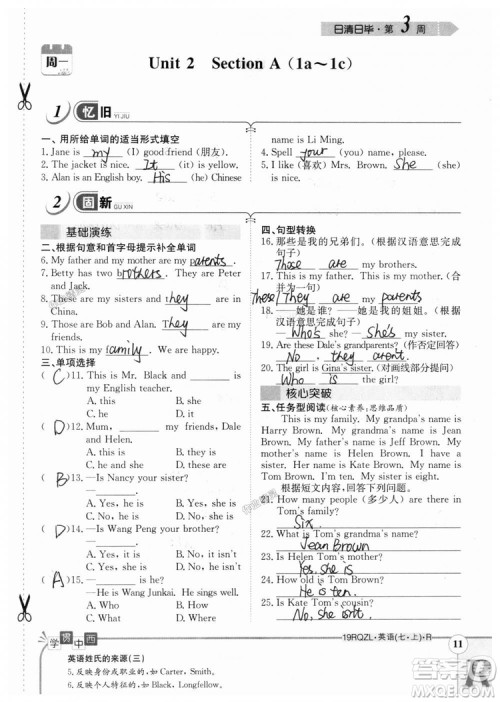 日清日毕·第3周
周一
Unit 2 Section A (1a～1c)
1 忆 旧 YI JIU
一、用所给单词的适当形式填空
1. Jane is my (I) good friend (朋友).
2. The jacket is nice. It (it) is yellow.
3. Alan is an English boy. His (he) Chinese
name is Li Ming.
4. Spell your (you) name, please.
5. I like (喜欢) Mrs. Brown. She (she) is nice.
2 固 新 GU XIN
基础演练
二、根据句意和首字母提示补全单词
6. My father and my mother are my parents.
7. Betty has two brothers. They are Peter
and Jack.
8. These are my sisters and they are in
China.
9. Those are Bob and Alan. They are my
friends.
10. This is my family. We are happy.
三、单项选择
( C )11. This is Mr. Black and ______ is
my English teacher.
A. my B. his
C. he D. she
( D )12. Mum, ______ my friends, Dale
and Helen.
A. this is B. that is
C. they are D. these are
( B )13. —Is Nancy your sister?
—______.
A. Yes, he is B. Yes, she is
C. No, she is D. No, he isn't
( D )14. —Is Wang Peng your brother?
—______.
A. Yes, it is B. No, it isn't
C. Yes, he isn't D. No, he isn't
( A )15. —______ is he?
—He is Wang Zimo, my brother.
A. Who B. What
C. How D. Where
四、句型转换
16. 那些是我的兄弟们。(根据汉语意思完成
句子)
Those are my brothers.
17. This is my father. This is my mother. (合
并为一句)
These/They are my parents.
18. ——她是谁? ——她是我的姐姐。(根据汉
语意思完成句子)
—Who's she? —She's my sister.
19. Are these Dale's grandparents? (作否定回答)
No, they aren't.
20. The girl is Gina's sister. (对画线部分提问)
Who is the girl?
核心突破
五、任务型阅读(核心素养:思维品质)
This is my family. My grandpa's name is
Harry Brown. My grandma's name is Jean
Brown. My father's name is Jeff Brown. My
mother's name is Helen Brown. My name is
Tom Brown. I have (有) a brother and a
sister. My brother's name is John Brown. My
sister's name is Kate Brown.
根据短文内容,回答下列问题。
21. How many people (多少人) are there in
Tom's family?
Six.
22. What is Tom's grandma's name?
Jean Brown
23. Is Helen Tom's mother?
Yes, She is.
24. How old is Tom?
25. Is Kate Tom's cousin?
No, she isn't.
19RQZL·英语(七·上)·R
11
学贯中西
英语姓氏的来源(三)
5. 反映身份或职业的,如 Carter, Smith.
6. 反映个人特征的,如 Black, Longfellow.